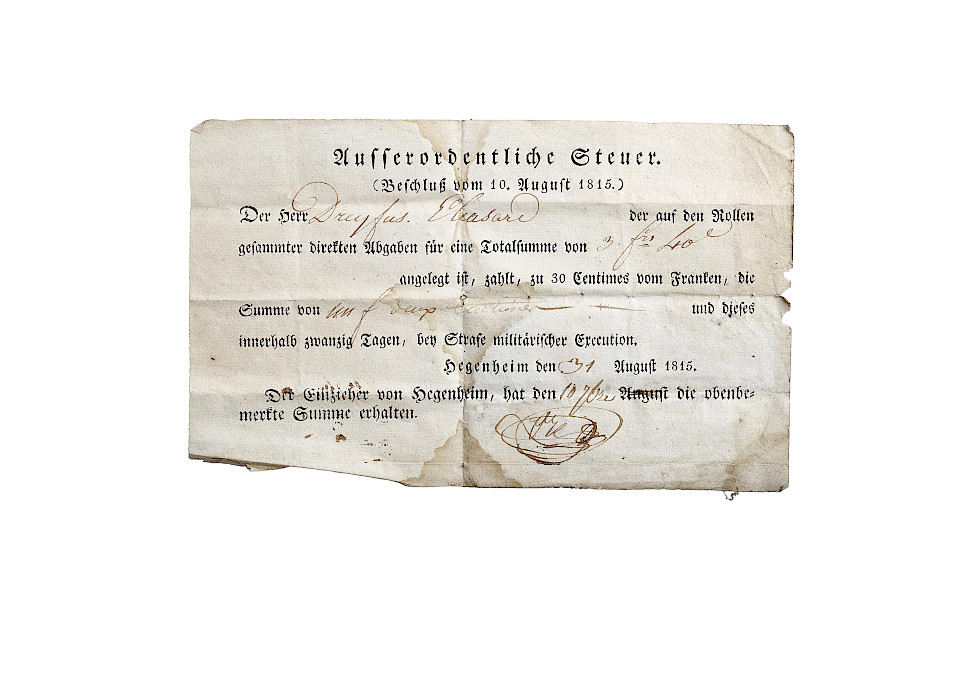 Ausserordentliche Steuer.
(Beschluß vom 10. August 1815.)
Der Herr Dreyfus. Eleasard der auf den Rollen
gesammter direkten Abgaben für eine Totalsumme von 3. frs 40c
angelegt ist, zahlt, zu 30 Centimes vom Franken, die
Summe von un f deux Centimes und dieses
innerhalb zwanzig Tagen, bey Strafe militärischer Execution.
Hegenheim den 31 August 1815.
Der Einzieher von Hegenheim, hat den 10 7bre August die obenbe-
merkte Summe erhalten.